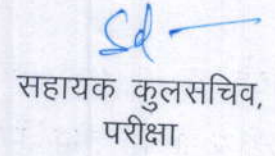 Sd —
सहायक कुलसचिव,
परीक्षा